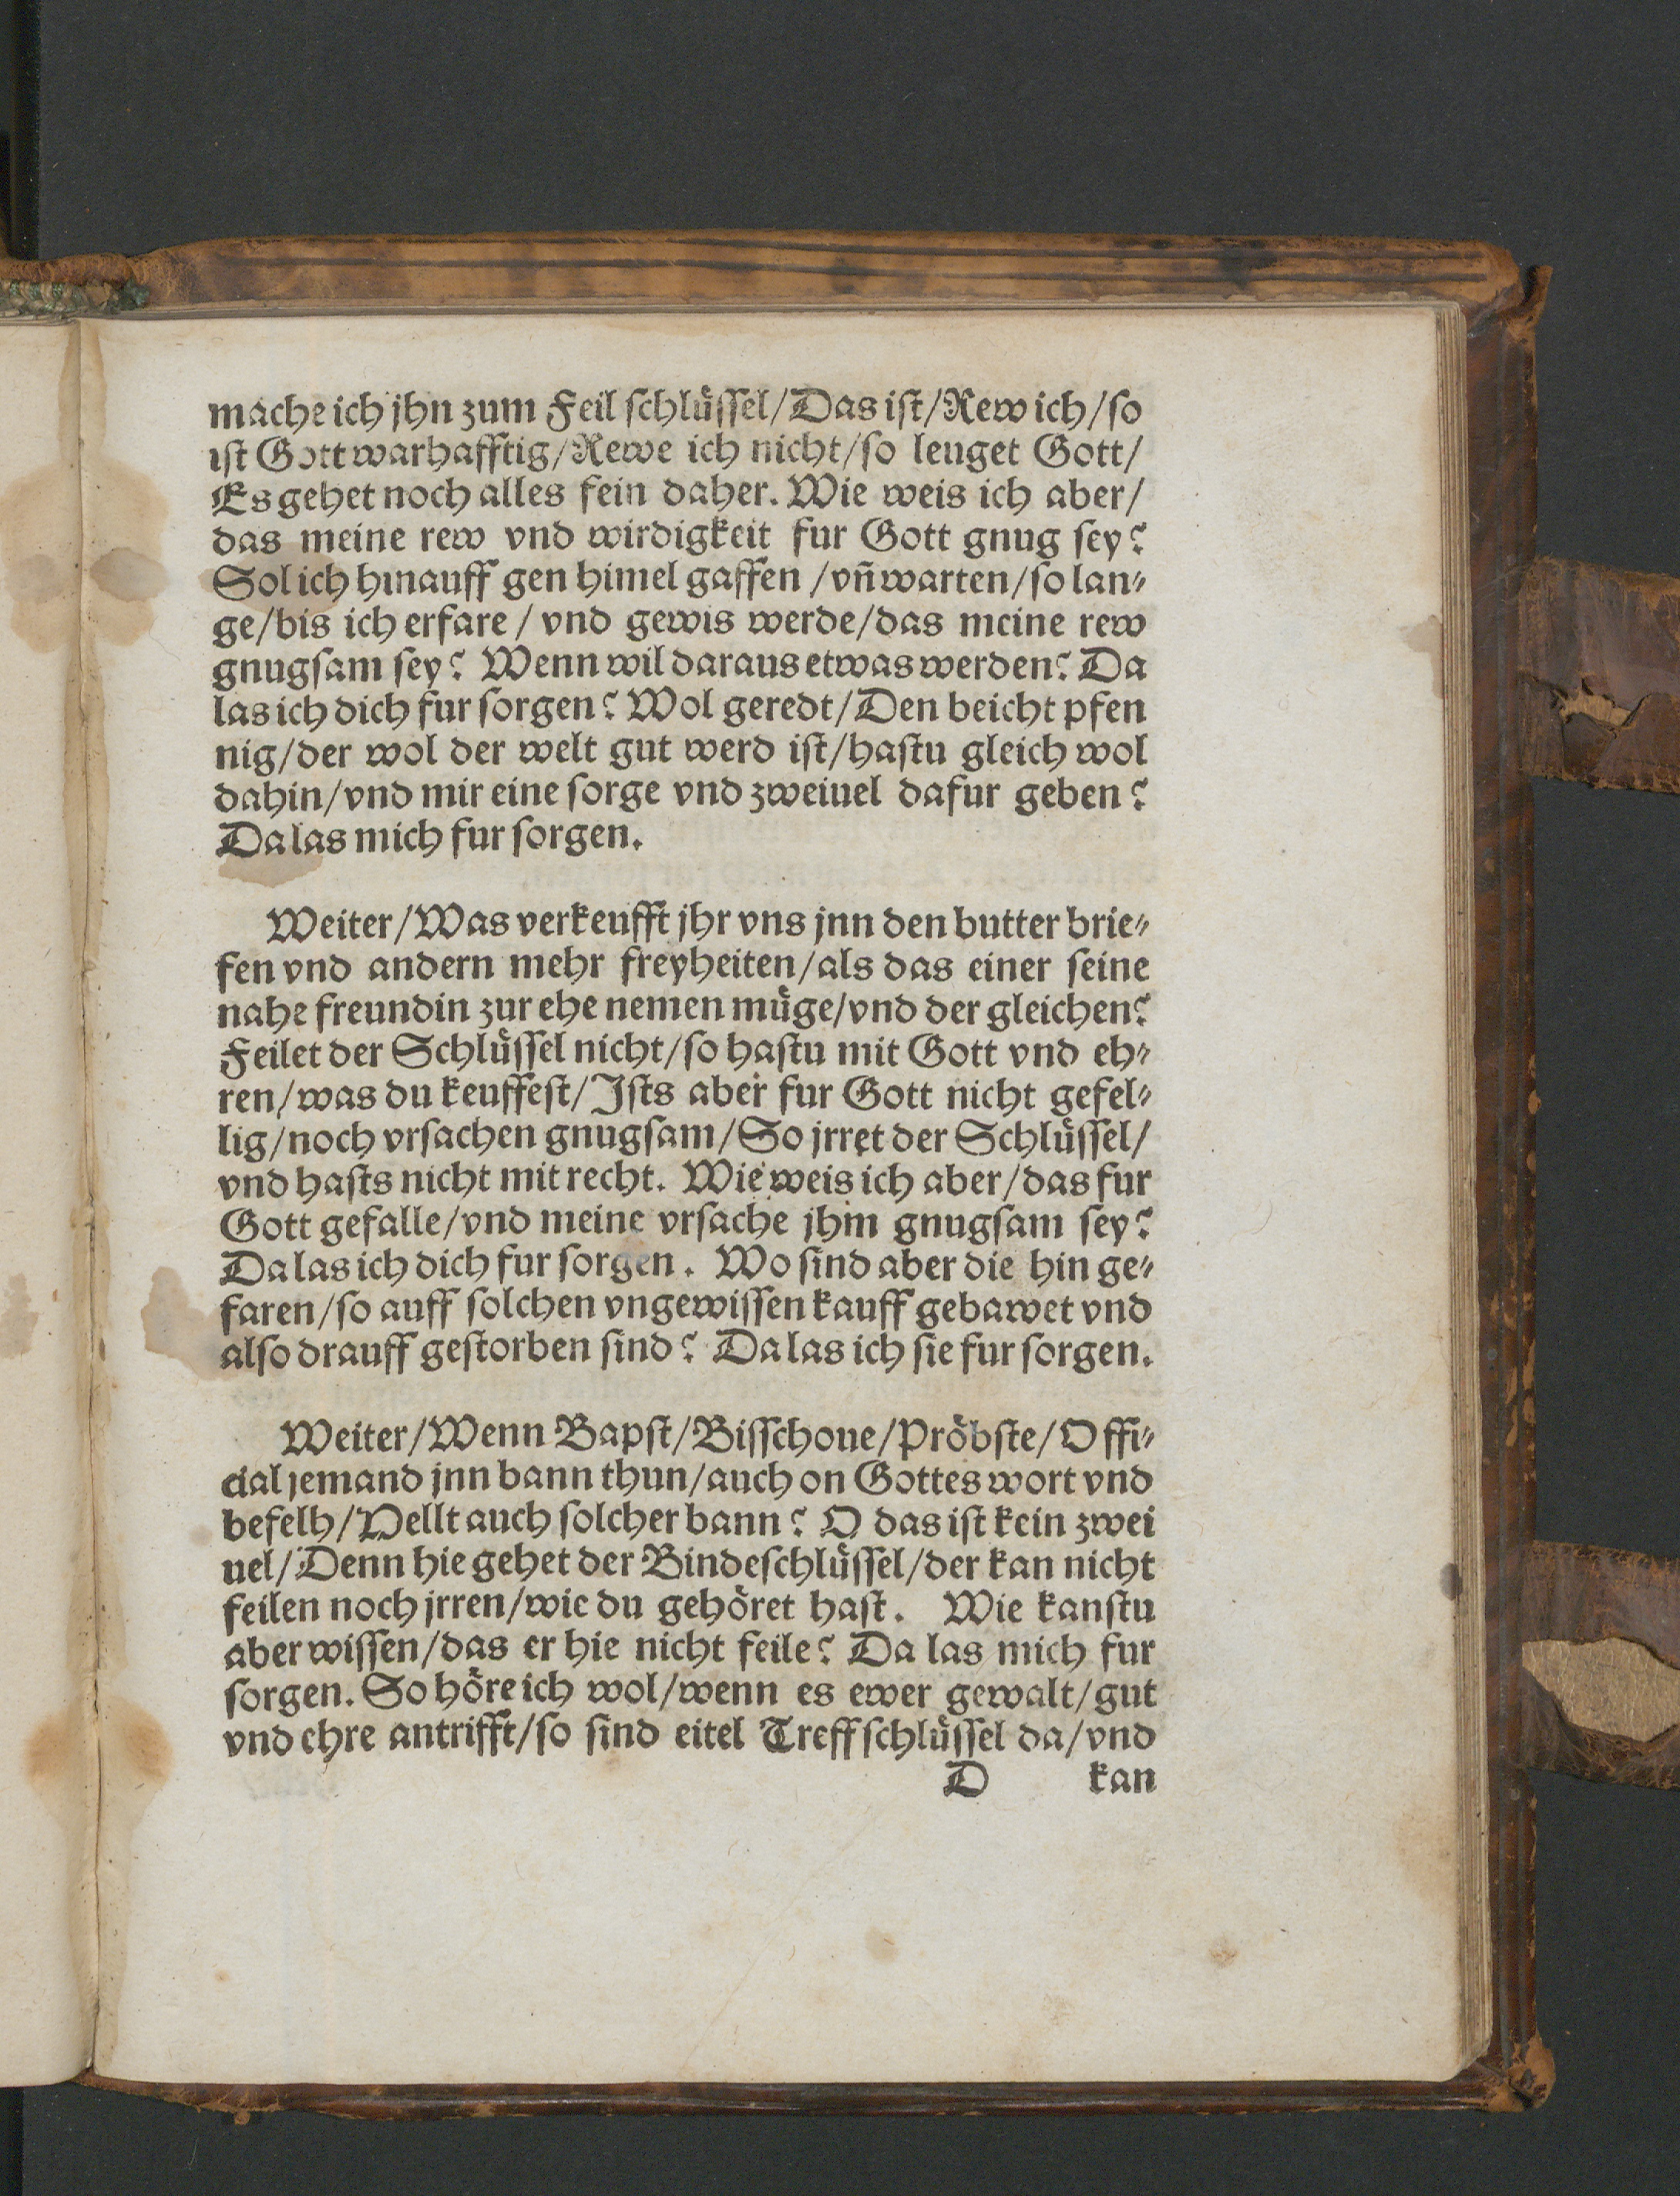 mache ich jhn zum Feil ſchlüſſel/Das iſt/Rew ich/ſo
iſt Gott warhafftig/Rewe ich nicht/ſo leuget Gott/
Es gehet noch alles fein daher. Wie weis ich aber/
das meine rew vnd wirdigkeit fur Gott gnug ſey?
Sol ich hinauff gen himel gaffen/vn̄ warten/ſo lan⸗
ge/bis ich erfare/vnd gewis werde/das meine rew
gnugſam ſey? Wenn wil daraus etwas werden? Da
las ich dich fur ſorgen? Wol geredt/Den beicht pfen
nig/der wol der welt gut werd iſt/haſtu gleich wol
dahin/vnd mir eine ſorge vnd zweiuel dafur geben?
Da las mich fur ſorgen.
Weiter/Was verkeufft jhr vns jnn den butter brie⸗
fen vnd andern mehr freyheiten/als das einer ſeine
nahe freundin zur ehe nemen müge/vnd der gleichen?
Feilet der Schlüſſel nicht/ſo haſtu mit Gott vnd eh⸗
ren/was du keuffeſt/Iſts aber fur Gott nicht gefel⸗
lig/noch vrſachen gnugſam/So jrret der Schlüſſel/
vnd haſts nicht mit recht. Wie weis ich aber/das fur
Gott gefalle/vnd meine vrſache jhm gnugſam ſey?
Da las ich dich fur ſorgen. Wo ſind aber die hin ge⸗
faren/ſo auff ſolchen vngewiſſen kauff gebawet vnd
alſo drauff geſtorben ſind? Da las ich ſie fur ſorgen.
Weiter/Wenn Bapſt/Biſſchoue/Pröbſte/Offi⸗
cial jemand jnn bann thun/auch on Gottes wort vnd
befelh/Vellt auch ſolcher bann? O das iſt kein zwei
uel/Denn hie gehet der Bindeſchlüſſel/der kan nicht
feilen noch jrren/wie du gehöret haſt. Wie kanſtu
aber wiſſen/das er hie nicht feile? Da las mich fur
ſorgen. So höre ich wol/wenn es ewer gewalt/gut
vnd ehre antrifft/ſo ſind eitel Treff ſchlüſſel da/vnd
D kan